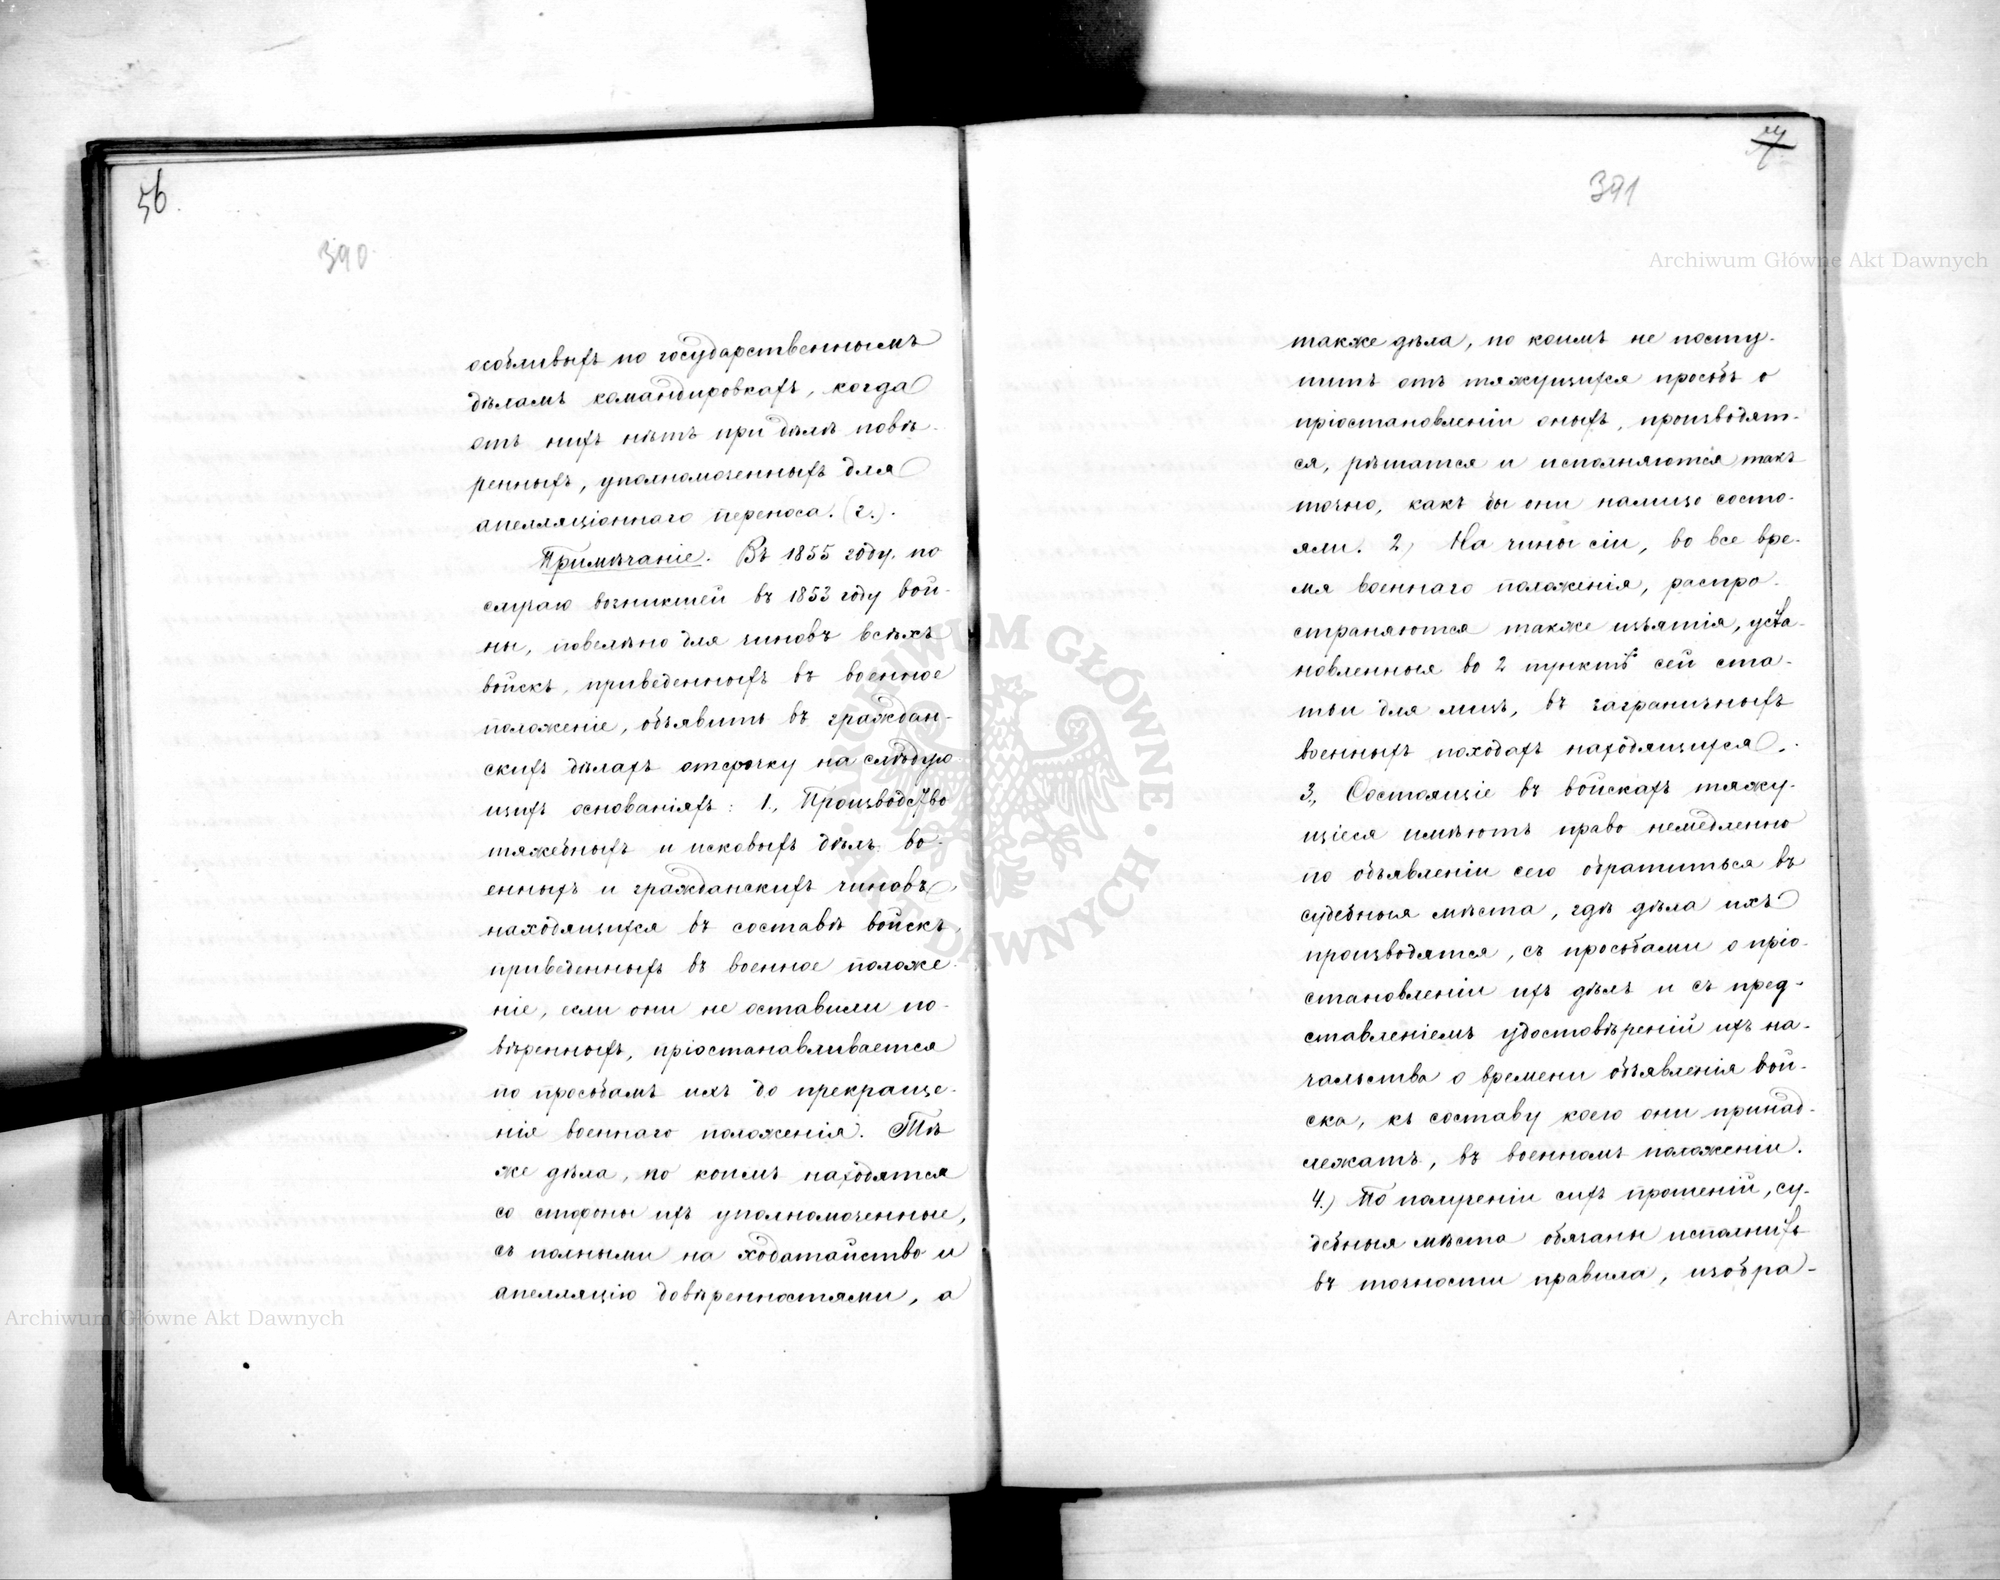 56.
390
особливыхъ по государственнымъ
дѣламъ командировкахъ, когда
отъ нихъ нѣтъ при дѣлѣ повѣ-
ренныхъ, уполномоченныхъ для
апелляціоннаго переноса. (г.).
Примѣчаніе. Въ 1855 году, по
случаю возникшей въ 1853 году вой-
ны, повелѣно для чиновъ всѣхъ
войскъ, приведенныхъ въ военное
положеніе, объявить въ граждан-
скихъ дѣлахъ отсрочку на слѣдую-
щихъ основаніяхъ: 1., Производство
тяжебныхъ и исковыхъ дѣлъ во-
енныхъ и гражданскихъ чиновъ,
находящихся въ составѣ войскъ,
приведенныхъ въ военное положе-
ніе, если они не оставили по-
вѣренныхъ, пріостанавливается
по просьбамъ ихъ до прекраще-
нія военнаго положенія. Тѣ
же дѣла, по коимъ находятся
со стороны ихъ уполномоченные,
съ полными на ходатайство и
апелляцію довѣренностями, а
391
также дѣла, по коимъ не посту-
питъ отъ тяжущихся просьбъ о
пріостановленіи оныхъ, производят-
ся, рѣшатся и исполняются такъ
точно, какъ бы они налицо состо-
яли. 2) На чины сіи, во все вре-
мя военнаго положенія, распро-
страняются также изъятія, уста-
новленныя во 2 пунктѣ сей ста-
тьи для лицъ, въ заграничныхъ
военныхъ походахъ находящихся.
3., Состоящіе въ войскахъ тяжу-
щіеся имѣютъ право немедленно
по объявленіи сего обратиться въ
судебныя мѣста, гдѣ дѣла ихъ
производятся, съ просьбами о прiо-
становленіи ихъ дѣлъ и съ пред-
ставленіемъ удостовѣреній ихъ на-
чальства о времени объявленія вой-
ска, къ составу коего они принад-
лежатъ, въ военномъ положеніи.
4.) По полученіи сихъ прошеній, су-
дебныя мѣста обязаны исполнить
въ точности правила, изобра-
Archiwum Główne Akt Dawnych
Archiwum Główne Akt Dawnych
ARCHIWUM GŁÓWNE · AKT DAWNYCH ·